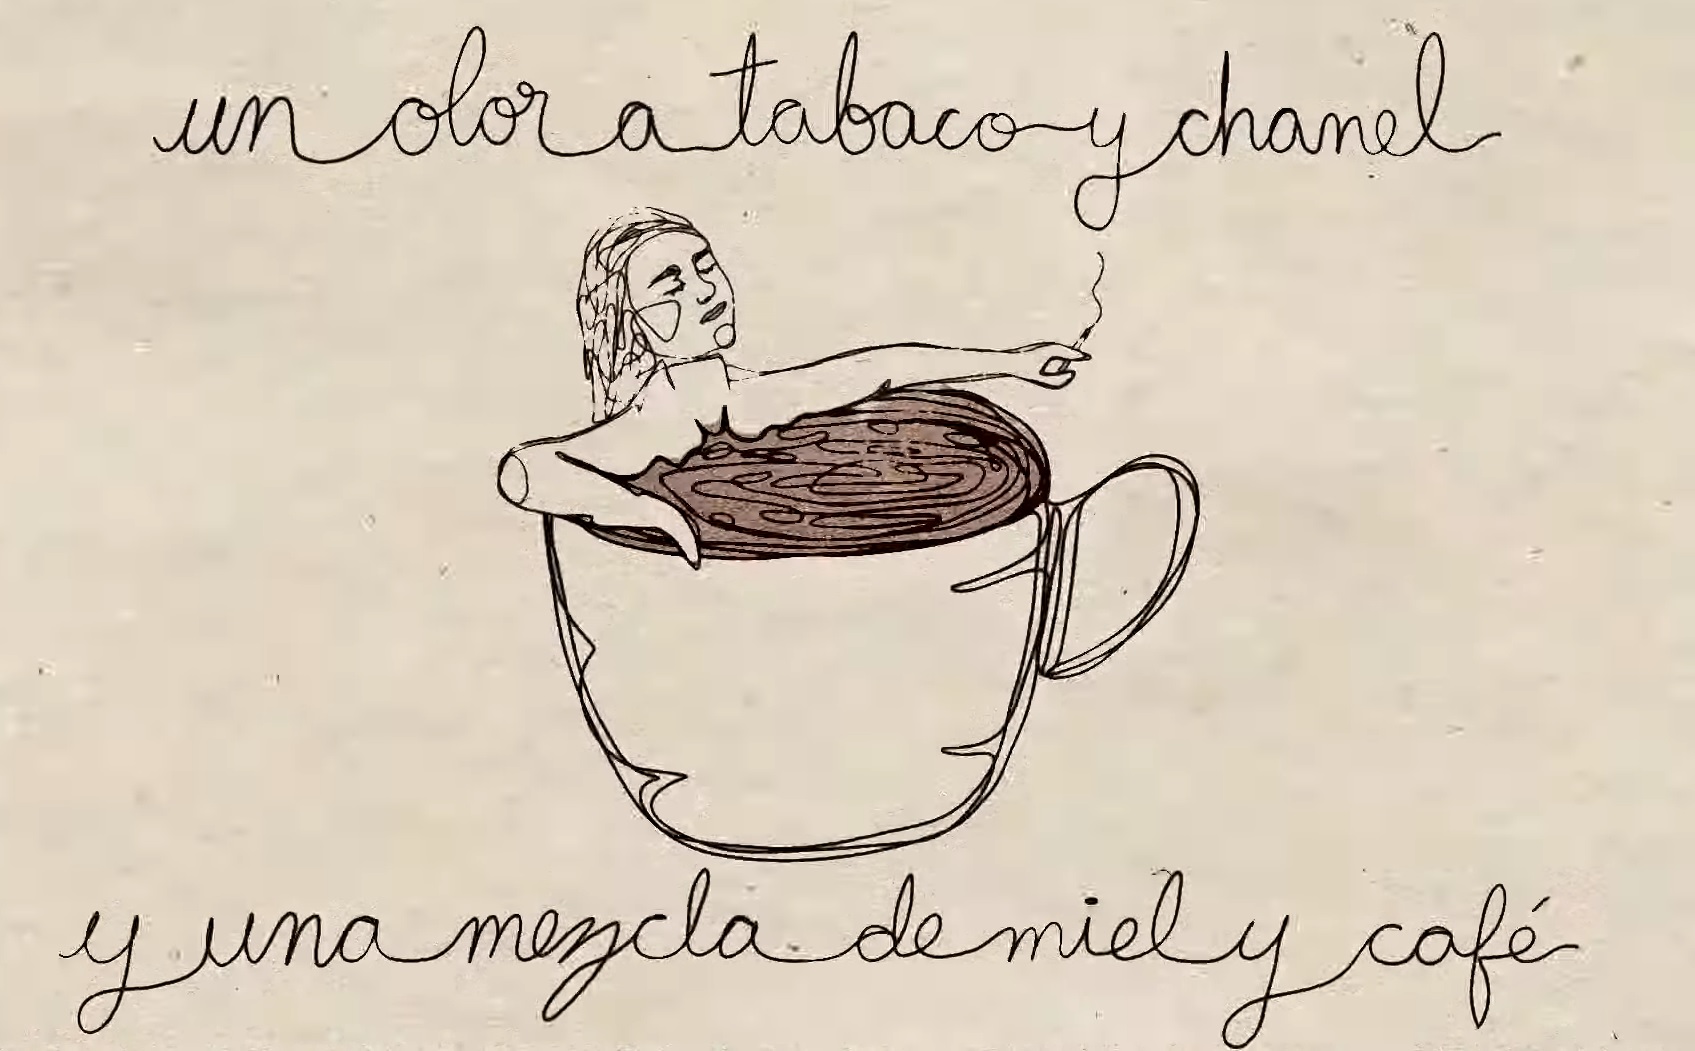 un olor a tabaco y chanel
y una mezcla de miel y café